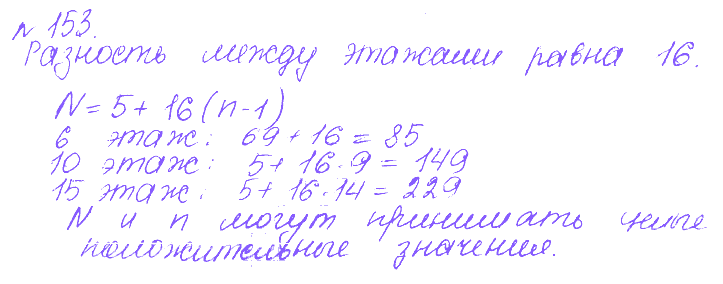 № 153.
Разность между этажами равна 16.
N = 5 + 16 (n - 1)
6 этаж: 69 + 16 = 85
10 этаж: 5 + 16 · 9 = 149
15 этаж: 5 + 16 · 14 = 229
N и n могут принимать целые
положительные значения.